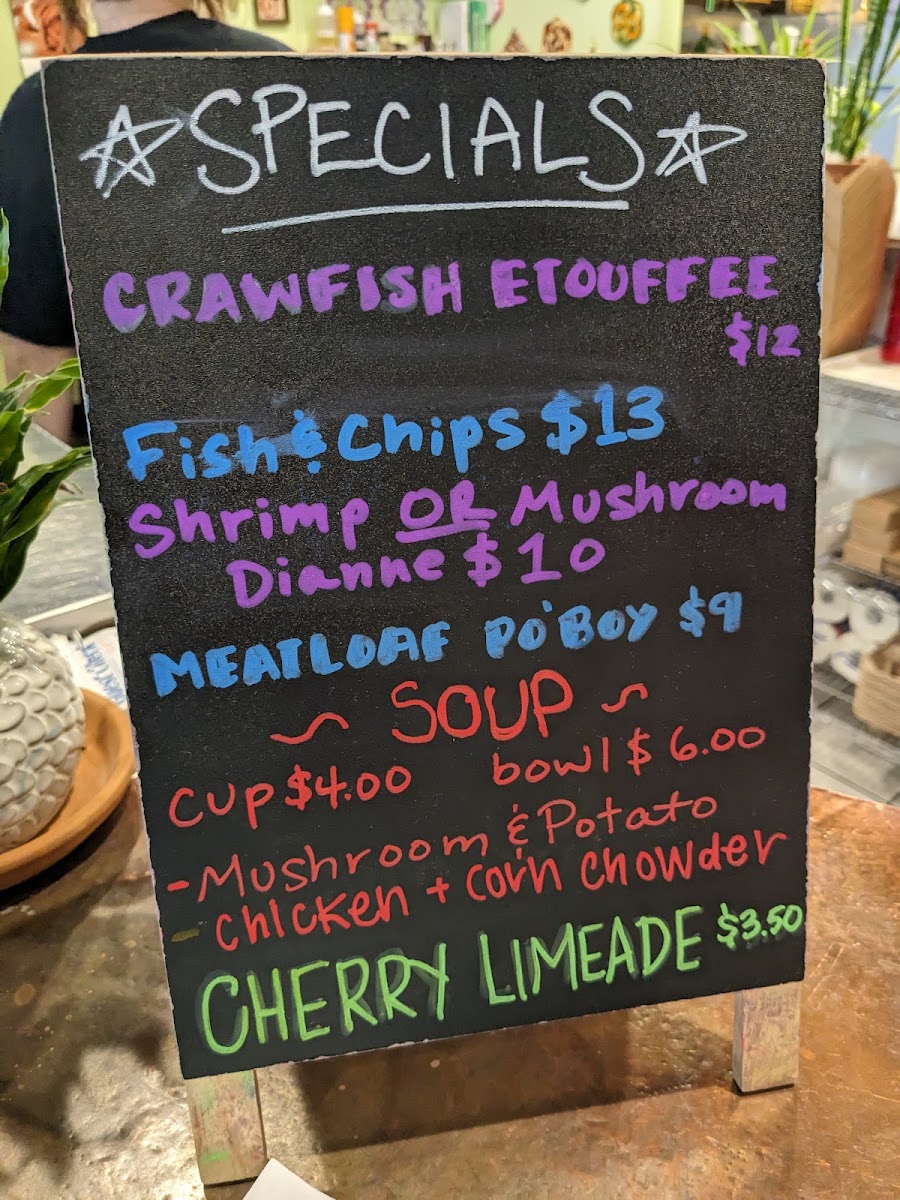 ☆SPECIALS☆
CRAWFISH ETOUFFEE
$12
Fish & Chips $13
Shrimp OR Mushroom
Dianne $10
MEATLOAF PO'BOY $9
~ SOUP ~
Cup $4.00 bowl $6.00
- Mushroom & Potato
- Chicken + Corn Chowder
CHERRY LIMEADE $3.50